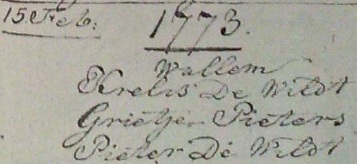 15 Feb:
1773.
Wallem
Krelis De Wildt
Grietje Pieters
Pieter De Wildt